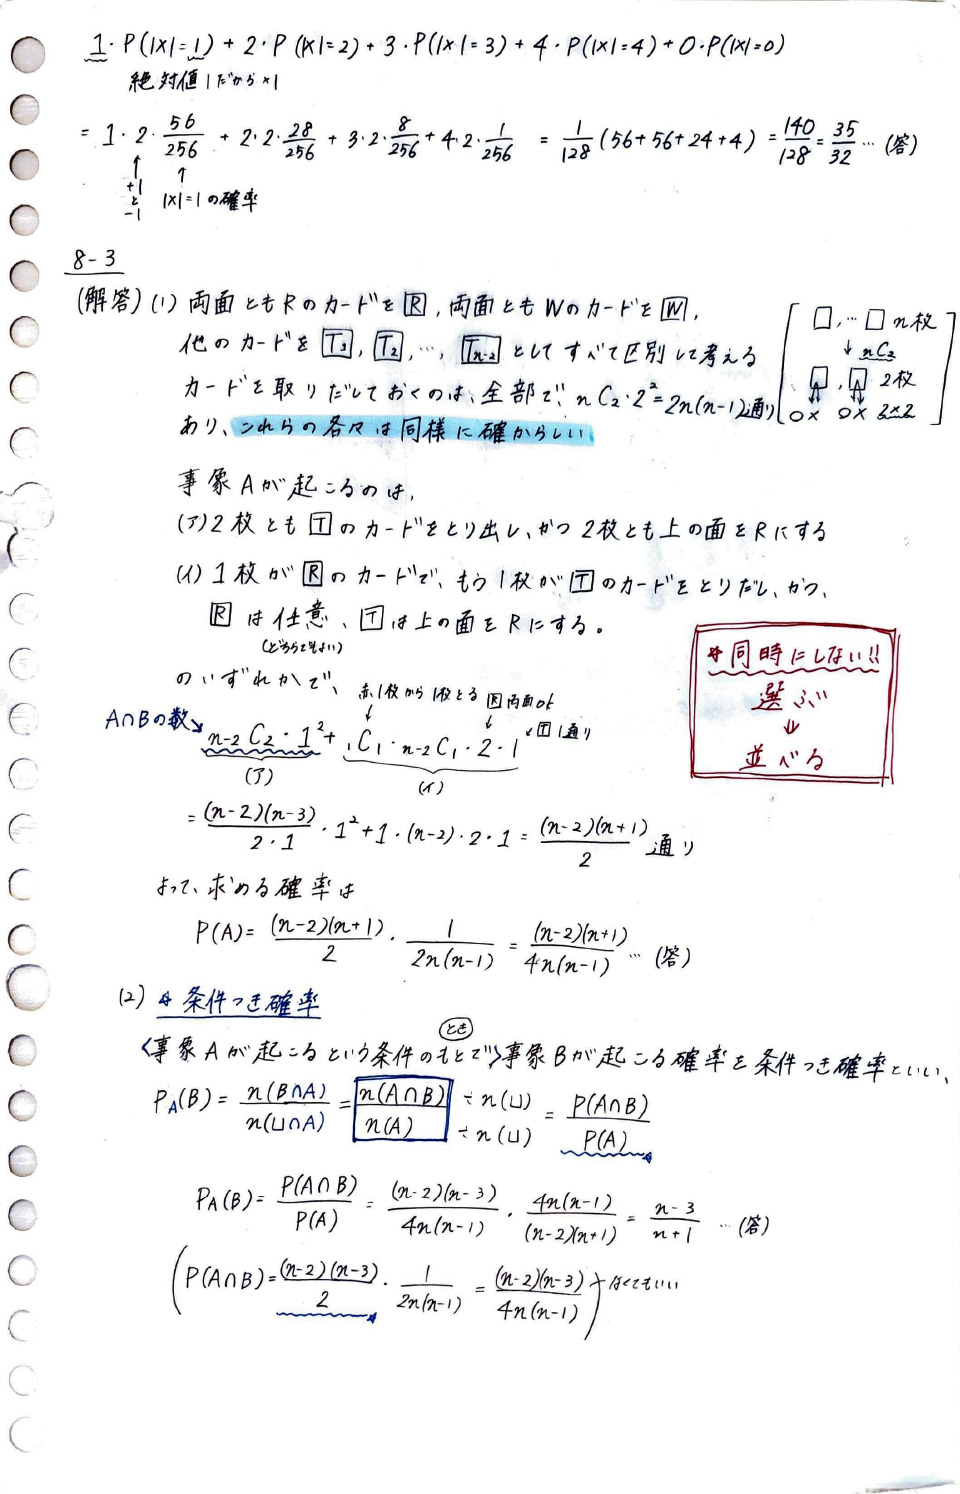 1・P(|X|=1)+2・P(|X|=2)+3・P(|X|=3)+4・P(|X|=4)+0・P(|X|=0)
絶対値1だから×1
= 1・2・56/256 + 2・2・28/256 + 3・2・8/256 + 4・2・1/256 = 1/128(56+56+24+4) = 140/128 = 35/32 … (答)
+1と-1 |X|=1の確率
8-3
(解答)(1) 両面ともRのカードをR, 両面ともWのカードをW,
□,…□ n枚
他のカードをT1, T2, …, Tn-2としてすべて区別して考える
↓ nC2
□, □ 2枚
カードを取りだしておくのは、全部で、nC2・2²=2n(n-1)通り
○× ○× 2×2
あり、これらの各々は同様に確からしい
事象Aが起こるのは、
(ア)2枚ともTのカードをとり出し、かつ2枚とも上の面をRにする
(イ) 1枚がRのカードで、もう1枚がTのカードをとりだし、かつ、
Rは任意、Tは上の面をRにする。
(どちらでもよい)
☆同時にしない!!
選ぶ
↓
並べる
のいずれかで、
赤1枚から1枚とる R両面ok
A∩Bの数 T1通り
n-2C2・1² + 1C1・n-2C1・2・1
(ア) (イ)
= (n-2)(n-3)/2・1 ・1²+1・(n-2)・2・1 = (n-2)(n+1)/2 通り
よって、求める確率は
P(A)= (n-2)(n+1)/2 ・ 1/2n(n-1) = (n-2)(n+1)/4n(n-1) … (答)
(2) ☆条件つき確率
とき
<事象Aが起こるという条件のもとで>事象Bが起こる確率を条件つき確率といい、
PA(B)= n(B∩A)/n(U∩A) = n(A∩B)/n(A) ÷n(U)/÷n(U) = P(A∩B)/P(A)
PA(B)= P(A∩B)/P(A) = (n-2)(n-3)/4n(n-1) ・ 4n(n-1)/(n-2)(n+1) = n-3/n+1 … (答)
(P(A∩B)= (n-2)(n-3)/2 ・ 1/2n(n-1) = (n-2)(n-3)/4n(n-1)) なくてもいい